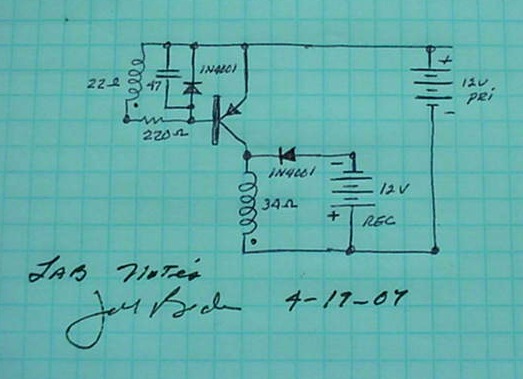 22Ω
47
1N4001
220Ω
+
12V
PRI
-
1N4001
-
12V
34Ω
+
REC
LAB NOTES
4-19-07